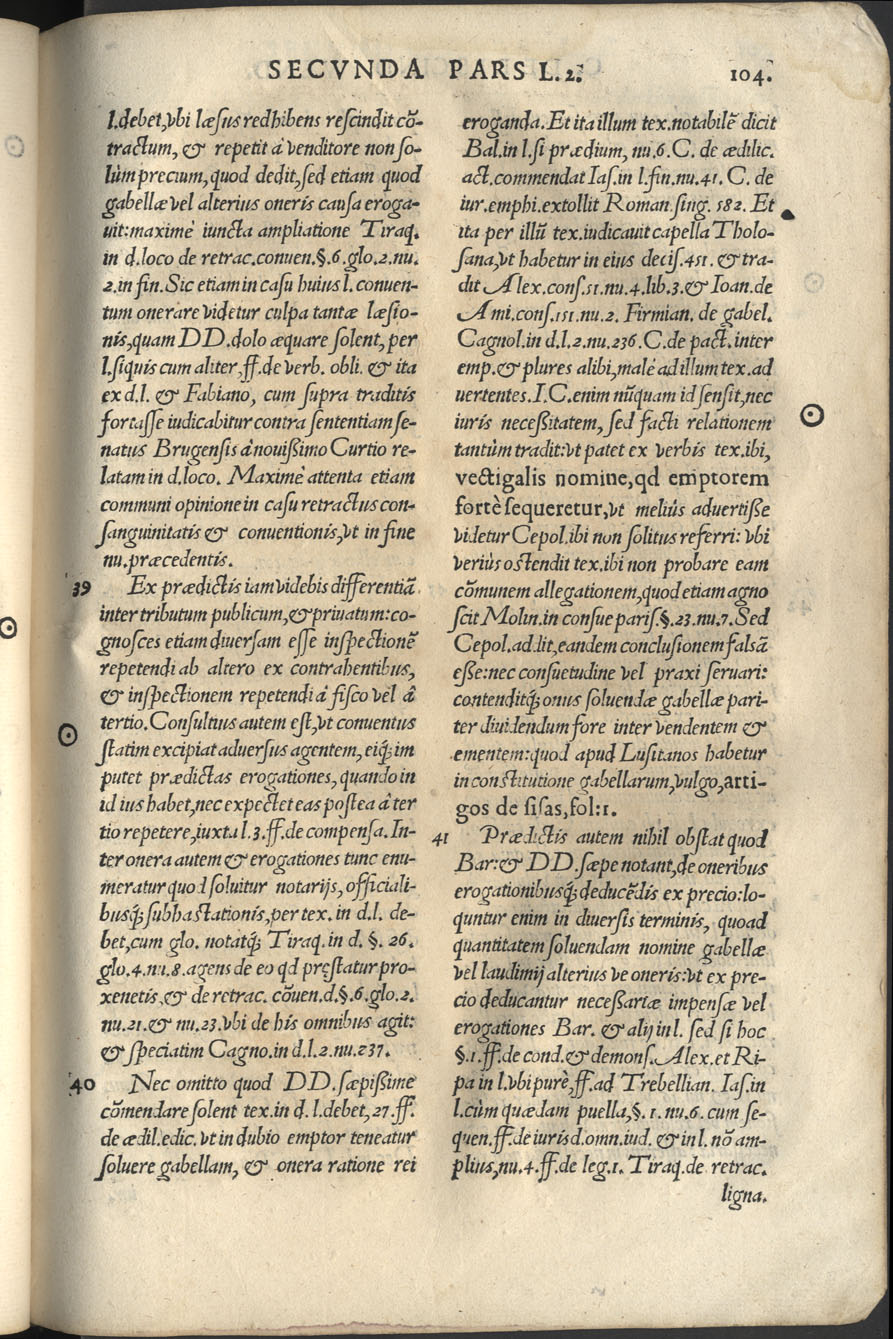 SECVNDA PARS L. 2. 104.
l.debet,vbi læsus redhibens rescindit cõ-
tractum, & repetit à venditore non so-
lùm precium, quod dedit, sed etiam quod
gabellæ vel alterius oneris causa eroga-
uit: maximè iuncta ampliatione Tiraq.
in d.loco de retrac.conuen.§.6.glo.2.nu.
2.in fin. Sic etiam in casu huius l. conuen-
tum onerare videtur culpa tantæ læsio-
nis, quam DD. dolo æquare solent, per
l.siquis cum aliter, ff.de verb. obli. & ita
ex d.l. & Fabiano, cum supra traditis
fortasse iudicabitur contra sententiam se-
natus Brugensis à nouißimo Curtio re-
latam in d.loco. Maximè attenta etiam
communi opinione in casu retractus con-
sanguinitatis & conuentionis, vt in fine
nu.præcedentis.
39 Ex prædictis iam videbis differentiã
inter tributum publicum, & priuatum: co-
gnosces etiam diuersam esse inspectionẽ
repetendi ab altero ex contrahentibus,
& inspectionem repetendi à fisco vel à
tertio. Consultius autem est, vt conuentus
statim excipiat aduersus agentem, eiq́; im
putet prædictas erogationes, quando in
id ius habet, nec expectet eas postea à ter
tio repetere, iuxta l.3.ff.de compensa. In-
ter onera autem & erogationes tunc enu-
meratur quod soluitur notarijs, officiali-
busq́; subhastationis, per tex. in d.l. de-
bet, cum glo. notatq́; Tiraq. in d. §. 26.
glo.4.nu.8.agens de eo qd pręstatur pro-
xenetis, & de retrac. cõuen.d.§.6.glo.2.
nu.21.& nu.23.vbi de his omnibus agit:
& speciatim Cagno.in d.l.2.nu.237.
40 Nec omitto quod DD. sæpißime
cõmendare solent tex.in d. l.debet, 27.ff.
de ædil.edic. vt in dubio emptor teneatur
soluere gabellam, & onera ratione rei
eroganda. Et ita illum tex.notabilẽ dicit
Bal.in l.si prædium, nu.6.C. de ædilic.
act.commendat Ias.in l.fin.nu.41. C. de
iur.emphi.extollit Roman.sing. 582. Et
ita per illũ tex.iudicauit capella Tholo-
sana, vt habetur in eius decis.451. & tra-
dit Alex.cons.51.nu.4.lib.3.& Ioan.de
Ami.cons.151.nu.2. Firmian. de gabel.
Cagnol.in d.l.2.nu.236.C.de pact.inter
emp.& plures alibi, malè ad illum tex.ad
uertentes. I.C.enim nũquam id sensit, nec
iuris neceßitatem, sed facti relationem
tantùm tradit: vt patet ex verbis tex.ibi,
vectigalis nomine, qd emptorem
fortè sequeretur, vt meliùs aduertiße
videtur Cepol.ibi non solitus referri: vbi
veriùs ostendit tex.ibi non probare eam
cõmunem allegationem, quod etiam agno
scit Molin.in consue paris.§.23.nu.7. Sed
Cepol.addit, eandem conclusionem falsã
eße: nec consuetudine vel praxi seruari:
contenditq́; onus soluendæ gabellæ pari-
ter diuidendum fore inter vendentem &
ementem: quod apud Lusitanos habetur
in constitutione gabellarum, vulgo, arti-
gos de sisas, fol:1.
41 Prædictis autem nihil obstat quod
Bar: & DD. sæpe notant, de oneribus
erogationibusq́; deducẽdis ex precio: lo-
quntur enim in diuersis terminis, quoad
quantitatem soluendam nomine gabellæ
vel laudimij alterius ve oneris: vt ex pre-
cio deducantur neceßariæ impensæ vel
erogationes Bar. & alij in l. sed si hoc
§.1.ff.de cond.& demons. Alex.et Ri-
pa in l.vbi purè, ff.ad Trebellian. Ias.in
l.cùm quædam puella, §. 1. nu.6. cum se-
quen.ff.de iurisd.omn.iud. & in l. nõ am-
plius, nu.4.ff.de leg.1. Tiraq.de retrac.
ligna.